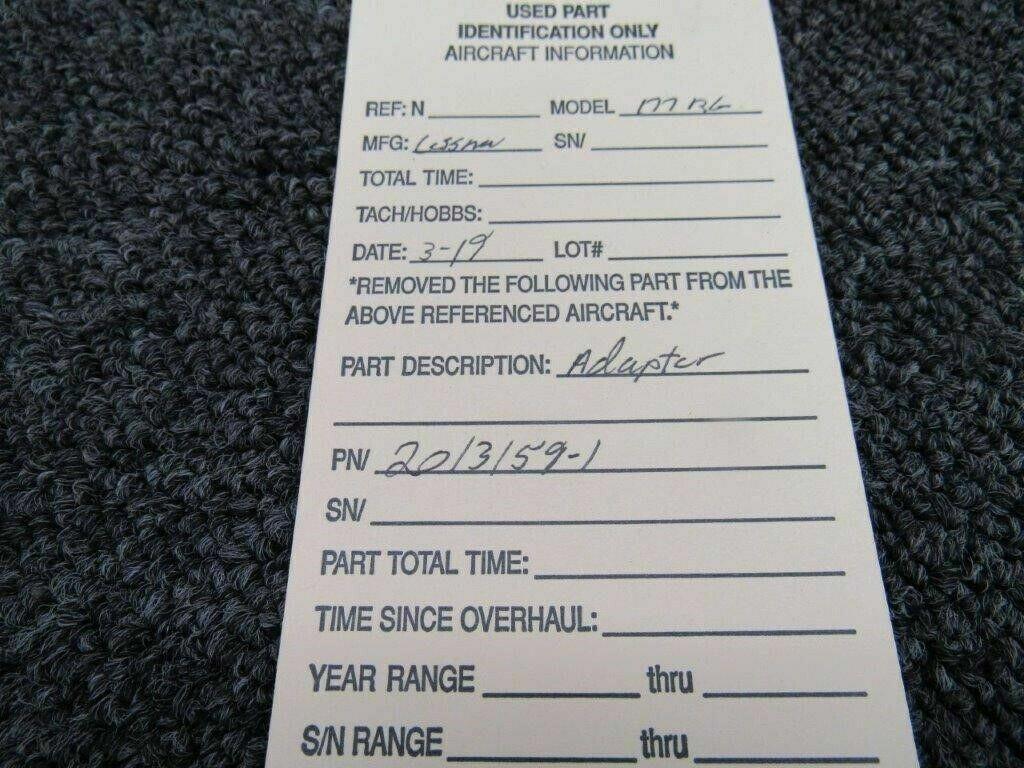 USED PART
IDENTIFICATION ONLY
AIRCRAFT INFORMATION
REF: N MODEL
MFG: Cessna SN/
TOTAL TIME:
TACH/HOBBS:
DATE: 3-19 LOT#
*REMOVED THE FOLLOWING PART FROM THE
ABOVE REFERENCED AIRCRAFT.*
PART DESCRIPTION: Adapter
PN/ 2013159-1
SN/
PART TOTAL TIME:
TIME SINCE OVERHAUL:
YEAR RANGE thru
S/N RANGE thru